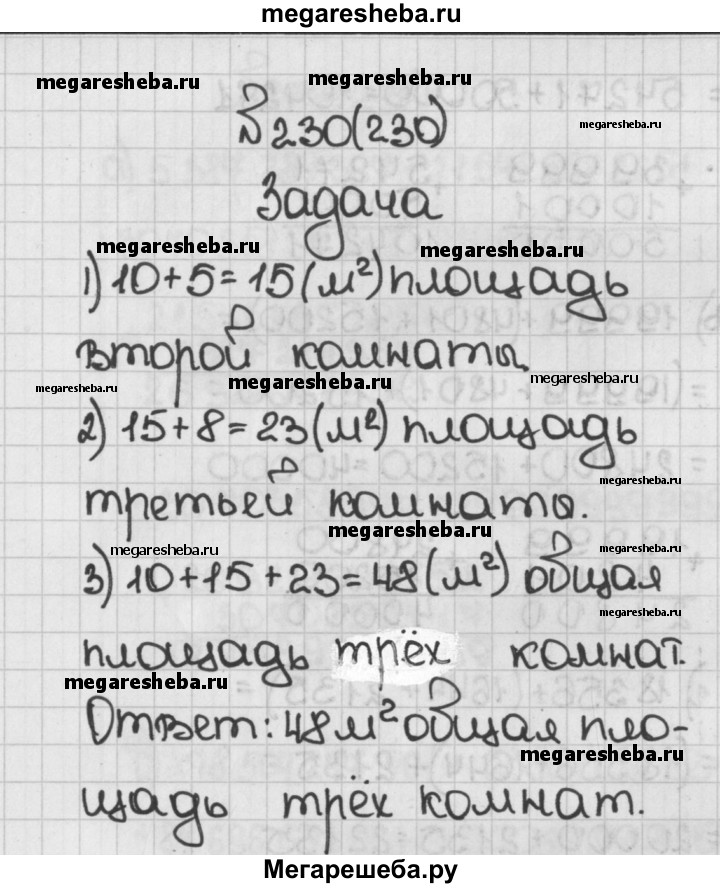 megaresheba.ru
megaresheba.ru megaresheba.ru
№230(230) megaresheba.ru
Задача
megaresheba.ru megaresheba.ru
1) 10+5=15(м²) площадь
второй комнаты.
megaresheba.ru megaresheba.ru megaresheba.ru
2) 15+8=23(м²) площадь
третьей комнаты.
megaresheba.ru
megaresheba.ru
megaresheba.ru megaresheba.ru
3) 10+15+23=48(м²) общая
megaresheba.ru
площадь трёх комнат.
megaresheba.ru
Ответ: 48м² общая пло-
megaresheba.ru
щадь трёх комнат.
Мегарешеба.ру